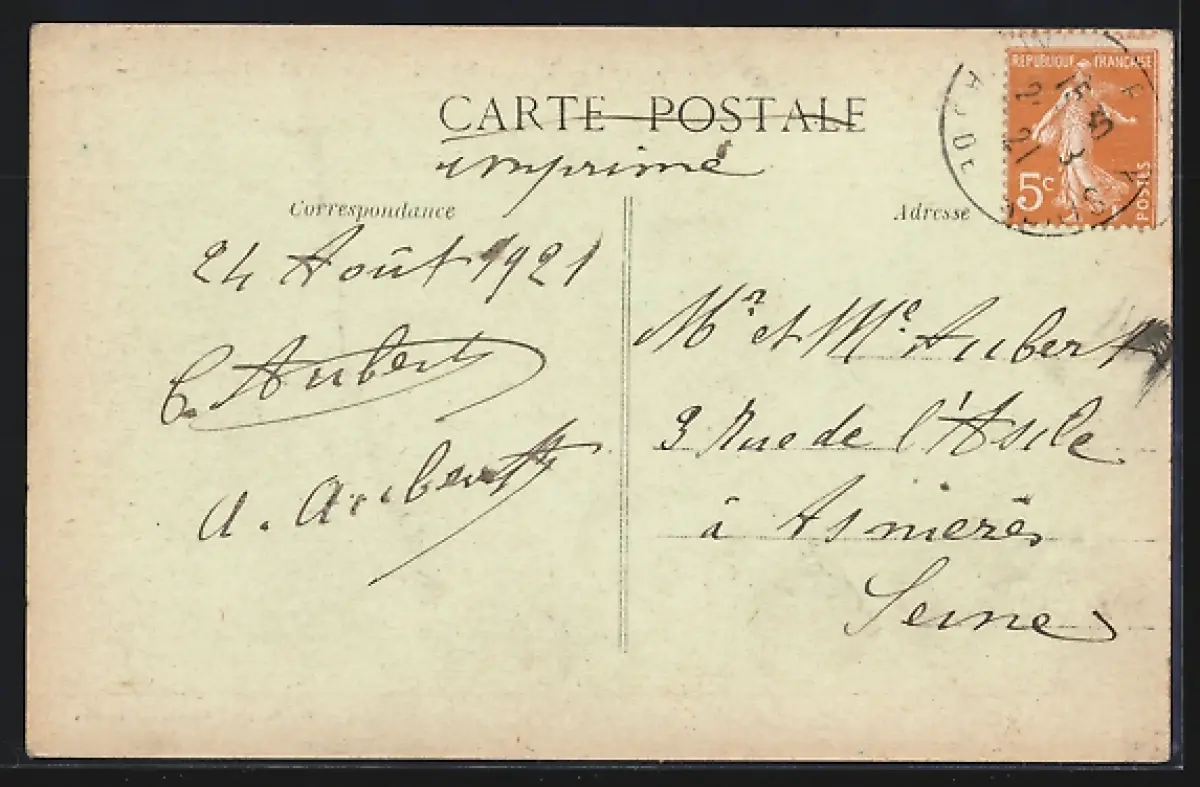 CARTE POSTALE
imprimé
Correspondance
24 Août 1921
C. Aubert
A. Aubert
Adresse
REPUBLIQUE FRANÇAISE
5c
POSTES
Mr et Me Aubert
3 Rue de l'Asile
à Asnières
Seine